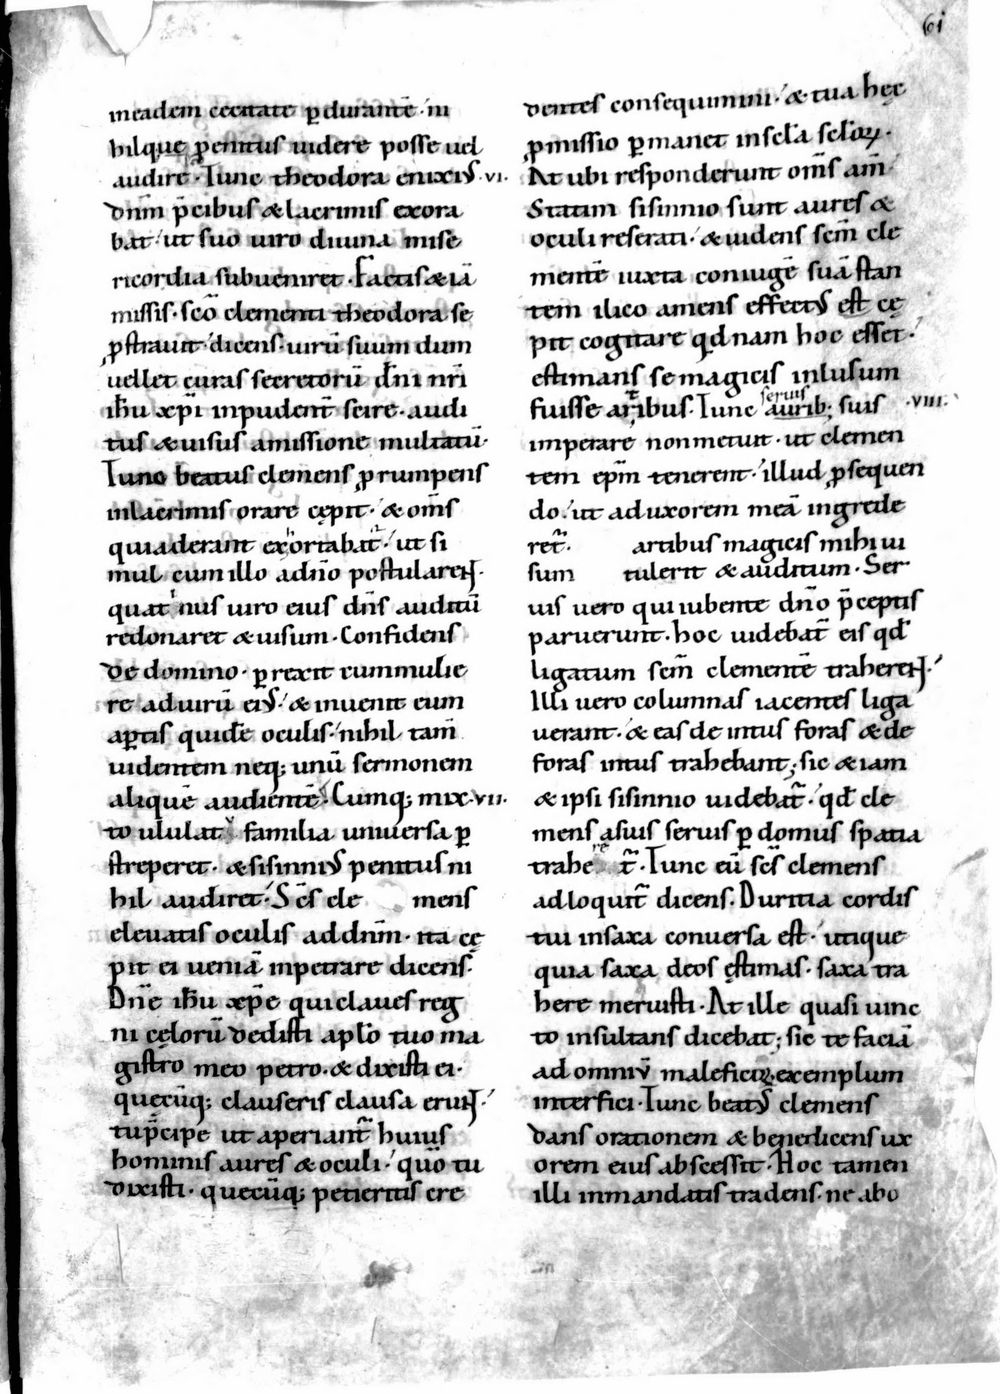 61
meadem cecitate ꝑdurantē· ni
hilque ꝓenitus uidere posse uel
audire· Tunc theodora enixiꝰ ·vi·
dn̄m p̄cibus & lacrimis exora
bat· ut suo uiro diuina mise
ricordia subueniret· Factis & iā
missis· sc̄o clementi theodora se
ꝓstrauit· dicens· uirū suum dum
uellet curas secretorū dn̄i nr̄i
ih̄u xp̄i inpudent̄ scire· audi
tus & uisus amissione multatū·
Tunc beatus clemens ꝓrumpens
inlacrimis orare cępit· & om̄s
quiaderant exhortabat᷑· ut si
mul cum illo addn̄o postularent·
quatinus uiro eius dn̄s auditū
redonaret & uisum· Confidens
de domino· ꝑrexit cummulie
re aduirū eiꝰ· & inuenit eum
aꝑtis quidē oculis· nihil tam̄
uidentem neq; unū sermonem
aliquē audientē· Cumq; mix ·vii·
to ululatu familia uniuersa ꝑ
streperet· & sisinniꝰ penitus ni
hil audiret· Sc̄s cle mens
eleuatis oculis addn̄m· ita cę
pit ei ueniā inpetrare dicens·
Dn̄e ih̄u xp̄e quiclaues reg
ni cęlorū dedisti apl̄o tuo ma
gistro meo petro· & dixisti ei·
quęcūq; clauseris clausa erunt·
tup̄cipe ut aperiant᷑ huius
hominis aures & oculi· quō tu
dixisti· quecūq; petieritis cre
dentes consequimini· & tua hęc
ꝓmissio ꝑmanet insc̄la sc̄loꝝ·
At ubi responderunt om̄s am̄·
Statim sisinnio sunt aures &
oculi reserati· & uidens sc̄m cle
mentē iuxta coniugē suā stan
tem ilico amens effectꝰ est cę
pit cogitare qd̄nam hoc esset·
estimans se magicis inlusum
fuisse artibus· Tunc seruis aurib; suis ·viii·
imperare nonmetuit· ut clemen
tem ep̄m tenerent· illud ꝓsequen
do· ut aduxorem meā ingrede
ret᷑· artibus magicis mihi ui
sum tulerit & auditum· Ser
uis uero qui iubente dn̄o p̄ceptis
paruerunt· hoc uidebat᷑ eis qd̄
ligatum sc̄m clementē traherent·
Illi uero columnas iacentes liga
uerant· & eas de intus foras & de
foras intus trahebant; sic & iam
& ipsi sisinnio uidebat᷑· qd̄ cle
mens asuis seruis ꝑ domus spatia
trahe re t᷑· Tunc eū sc̄s clemens
adloquit᷑ dicens· Duritia cordis
tui insaxa conuersa est· utique
quia saxa deos ęstimas· saxa tra
here meruisti· At ille quasi uinc
to insultans dicebat; sic te faciā
ad omniū maleficoꝝ exemplum
interfici· Tunc beatꝰ clemens
dans orationem & benedicens ux
orem eius abscessit· Hoc tamen
illi inmandatis tradens· ne abo